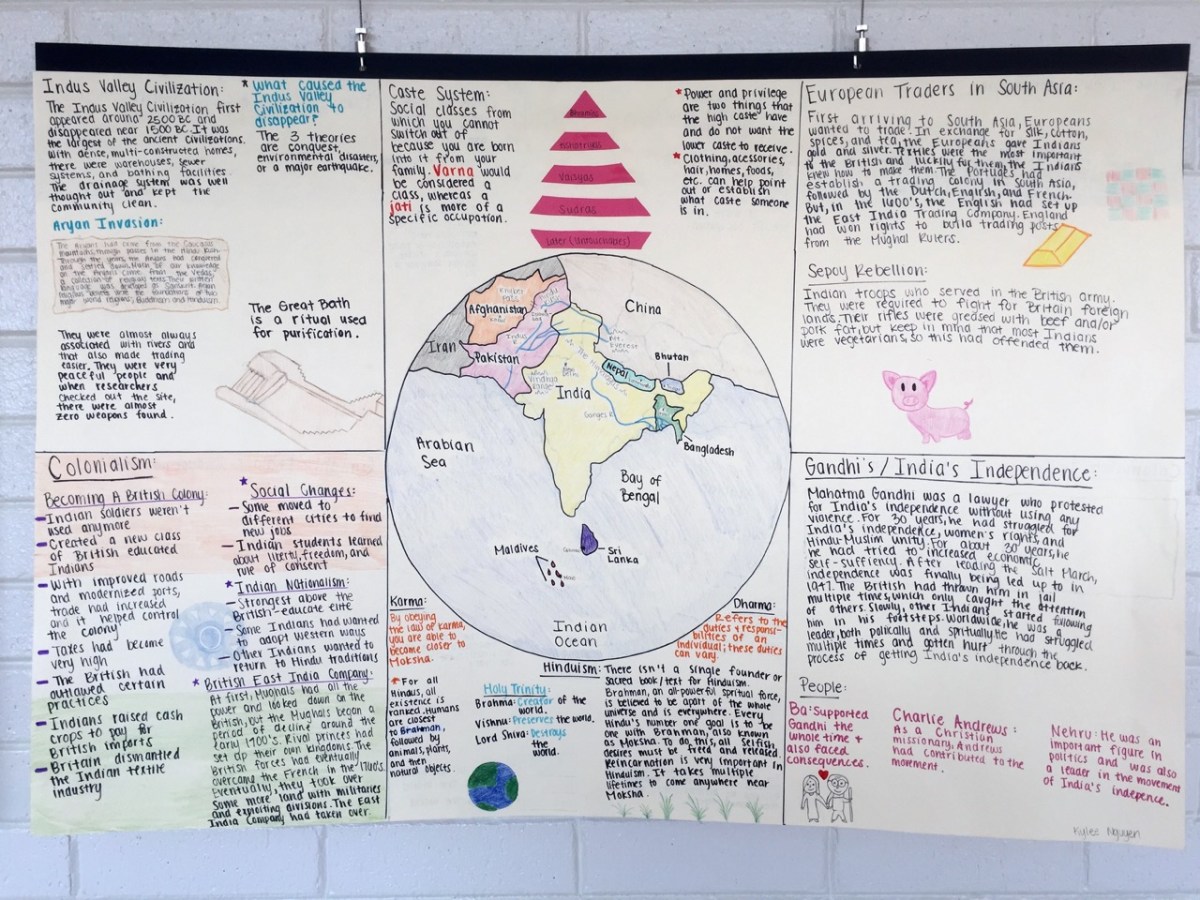 Indus Valley Civilization:
The Indus Valley Civilization first
appeared around 2500 BC and
disappeared near 1500 BC. It was
the largest of the ancient civilizations.
With dense, multi-constructed homes,
there were warehouses, sewer
systems, and bathing facilities.
The drainage system was well
thought out and kept the
community clean.
* What caused the
Indus Valley
Civilization to
disappear?
The 3 theories
are conquest,
environmental disasters,
or a major earthquake.
Aryan Invasion:
The Great Bath
is a ritual used
for purification.
They were almost always
associated with rivers and
that also made trading
easier. They were very
peaceful people and
when researchers
checked out the site,
there were almost
zero weapons found.
Caste System:
Social classes from
which you cannot
switch out of
because you are born
into it from your
family. Varna would
be considered a
class, whereas a
jati is more of a
specific occupation.
Vaisyas
Sudras
Later (Untouchables)
* Power and privilege
are two things that
the high caste have
and do not want the
lower caste to receive.
* Clothing, acessories,
hair, homes, foods,
etc. can help point
out or establish
what caste someone
is in.
European Traders in South Asia:
First arriving to South Asia, Europeans
wanted to trade. In exchange for silk, cotton,
spices, and tea, the Europeans gave Indians
gold and silver. Textiles were the most important
to the British and luckily for them, the Indians
knew how to make them. The Portugues had
establish a trading colony in South Asia,
followed by the Dutch, English, and French.
But, in the 1600's, the English had set up
the East India Trading Company. England
had won rights to build trading posts
from the Mughal Rulers.
Sepoy Rebellion:
Indian troops who served in the British army.
They were required to fight for Britain foreign
lands. Their rifles were greased with beef and/or
pork fat, but keep in mind that most Indians
were vegetarians, so this had offended them.
China
Afghanistan
Iran
Pakistan
Nepal
Bhutan
India
Ganges R.
Bangladesh
Arabian
Sea
Bay of
Bengal
Maldives
Sri
Lanka
Indian
Ocean
Colonialism:
Becoming A British Colony:
- Indian soldiers weren't
used anymore
- Created a new class
of British educated
Indians
- With improved roads
and modernized ports,
trade had increased
and it helped control
the colony
- Taxes had become
very high
- The British had
outlawed certain
practices
- Indians raised cash
crops to pay for
British imports
- Britain dismantled
the Indian textile
industry
* Social Changes:
- Some moved to
different cities to find
new jobs
- Indian students learned
about liberty, freedom, and
rule of consent
* Indian Nationalism:
- Strongest above the
British-educate elite
- Some Indians had wanted
to adopt Western ways
- Other Indians wanted to
return to Hindu traditions
* British East India Company:
At first, Mughals had all the
power and looked down on the
British, but the Mughals began a
period of decline around the
early 1700's. Rival princes had
set up their own kingdoms. The
British forces had eventually
overcame the French in the 1700's.
Eventually, they took over
some more land with militaries
and exploiting divisions. The East
India Company had taken over.
Karma:
By obeying
the law of karma,
you are able to
become closer to
Moksha.
* For all
Hindus, all
existence is
ranked. Humans
are closest
to Brahman,
followed by
animals, plants,
and then
natural objects.
Dharma:
Refers to the
duties & responsi-
bilities of an
individual; these duties
can vary.
Holy Trinity:
Brahma: Creator of the
world.
Vishnu: Preserves the world.
Lord Shiva: Destroys
the
world.
Hinduism: There isn't a single founder or
sacred book/text for Hinduism.
Brahman, an all-powerful spritual force,
is believed to be apart of the whole
universe and is everywhere. Every
Hindu's number one goal is to be
one with Brahman, also known
as Moksha. To do this, all selfish
desires must be freed and released.
Reincarnation is very important in
Hinduism. It takes multiple
lifetimes to come anywhere near
Moksha.
Gandhi's / India's Independence:
Mahatma Gandhi was a lawyer who protested
for India's independence without using any
violence. For 30 years, he had struggled for
India's independence, women's rights, and
Hindu-Muslim unity. For about 30 years, he
he had tried to increased economic
self-suffiency. After leading the Salt March,
independence was finally being led up to in
1947. The British had thrown him in jail
multiple times, which only caught the attention
of others. Slowly, other Indians started following
him in his footsteps. Worldwide, he was a
leader, both politically and spritually. He had struggled
multiple times and gotten hurt through the
process of getting India's independence back.
People:
Ba: Supported
Gandhi the
whole time +
also faced
consequences.
Charlie Andrews:
As a Christian
missionary, Andrews
had contributed to the
movement.
Nehru: He was an
important figure in
politics and was also
a leader in the movement
of India's indepence.
Kylee Nguyen